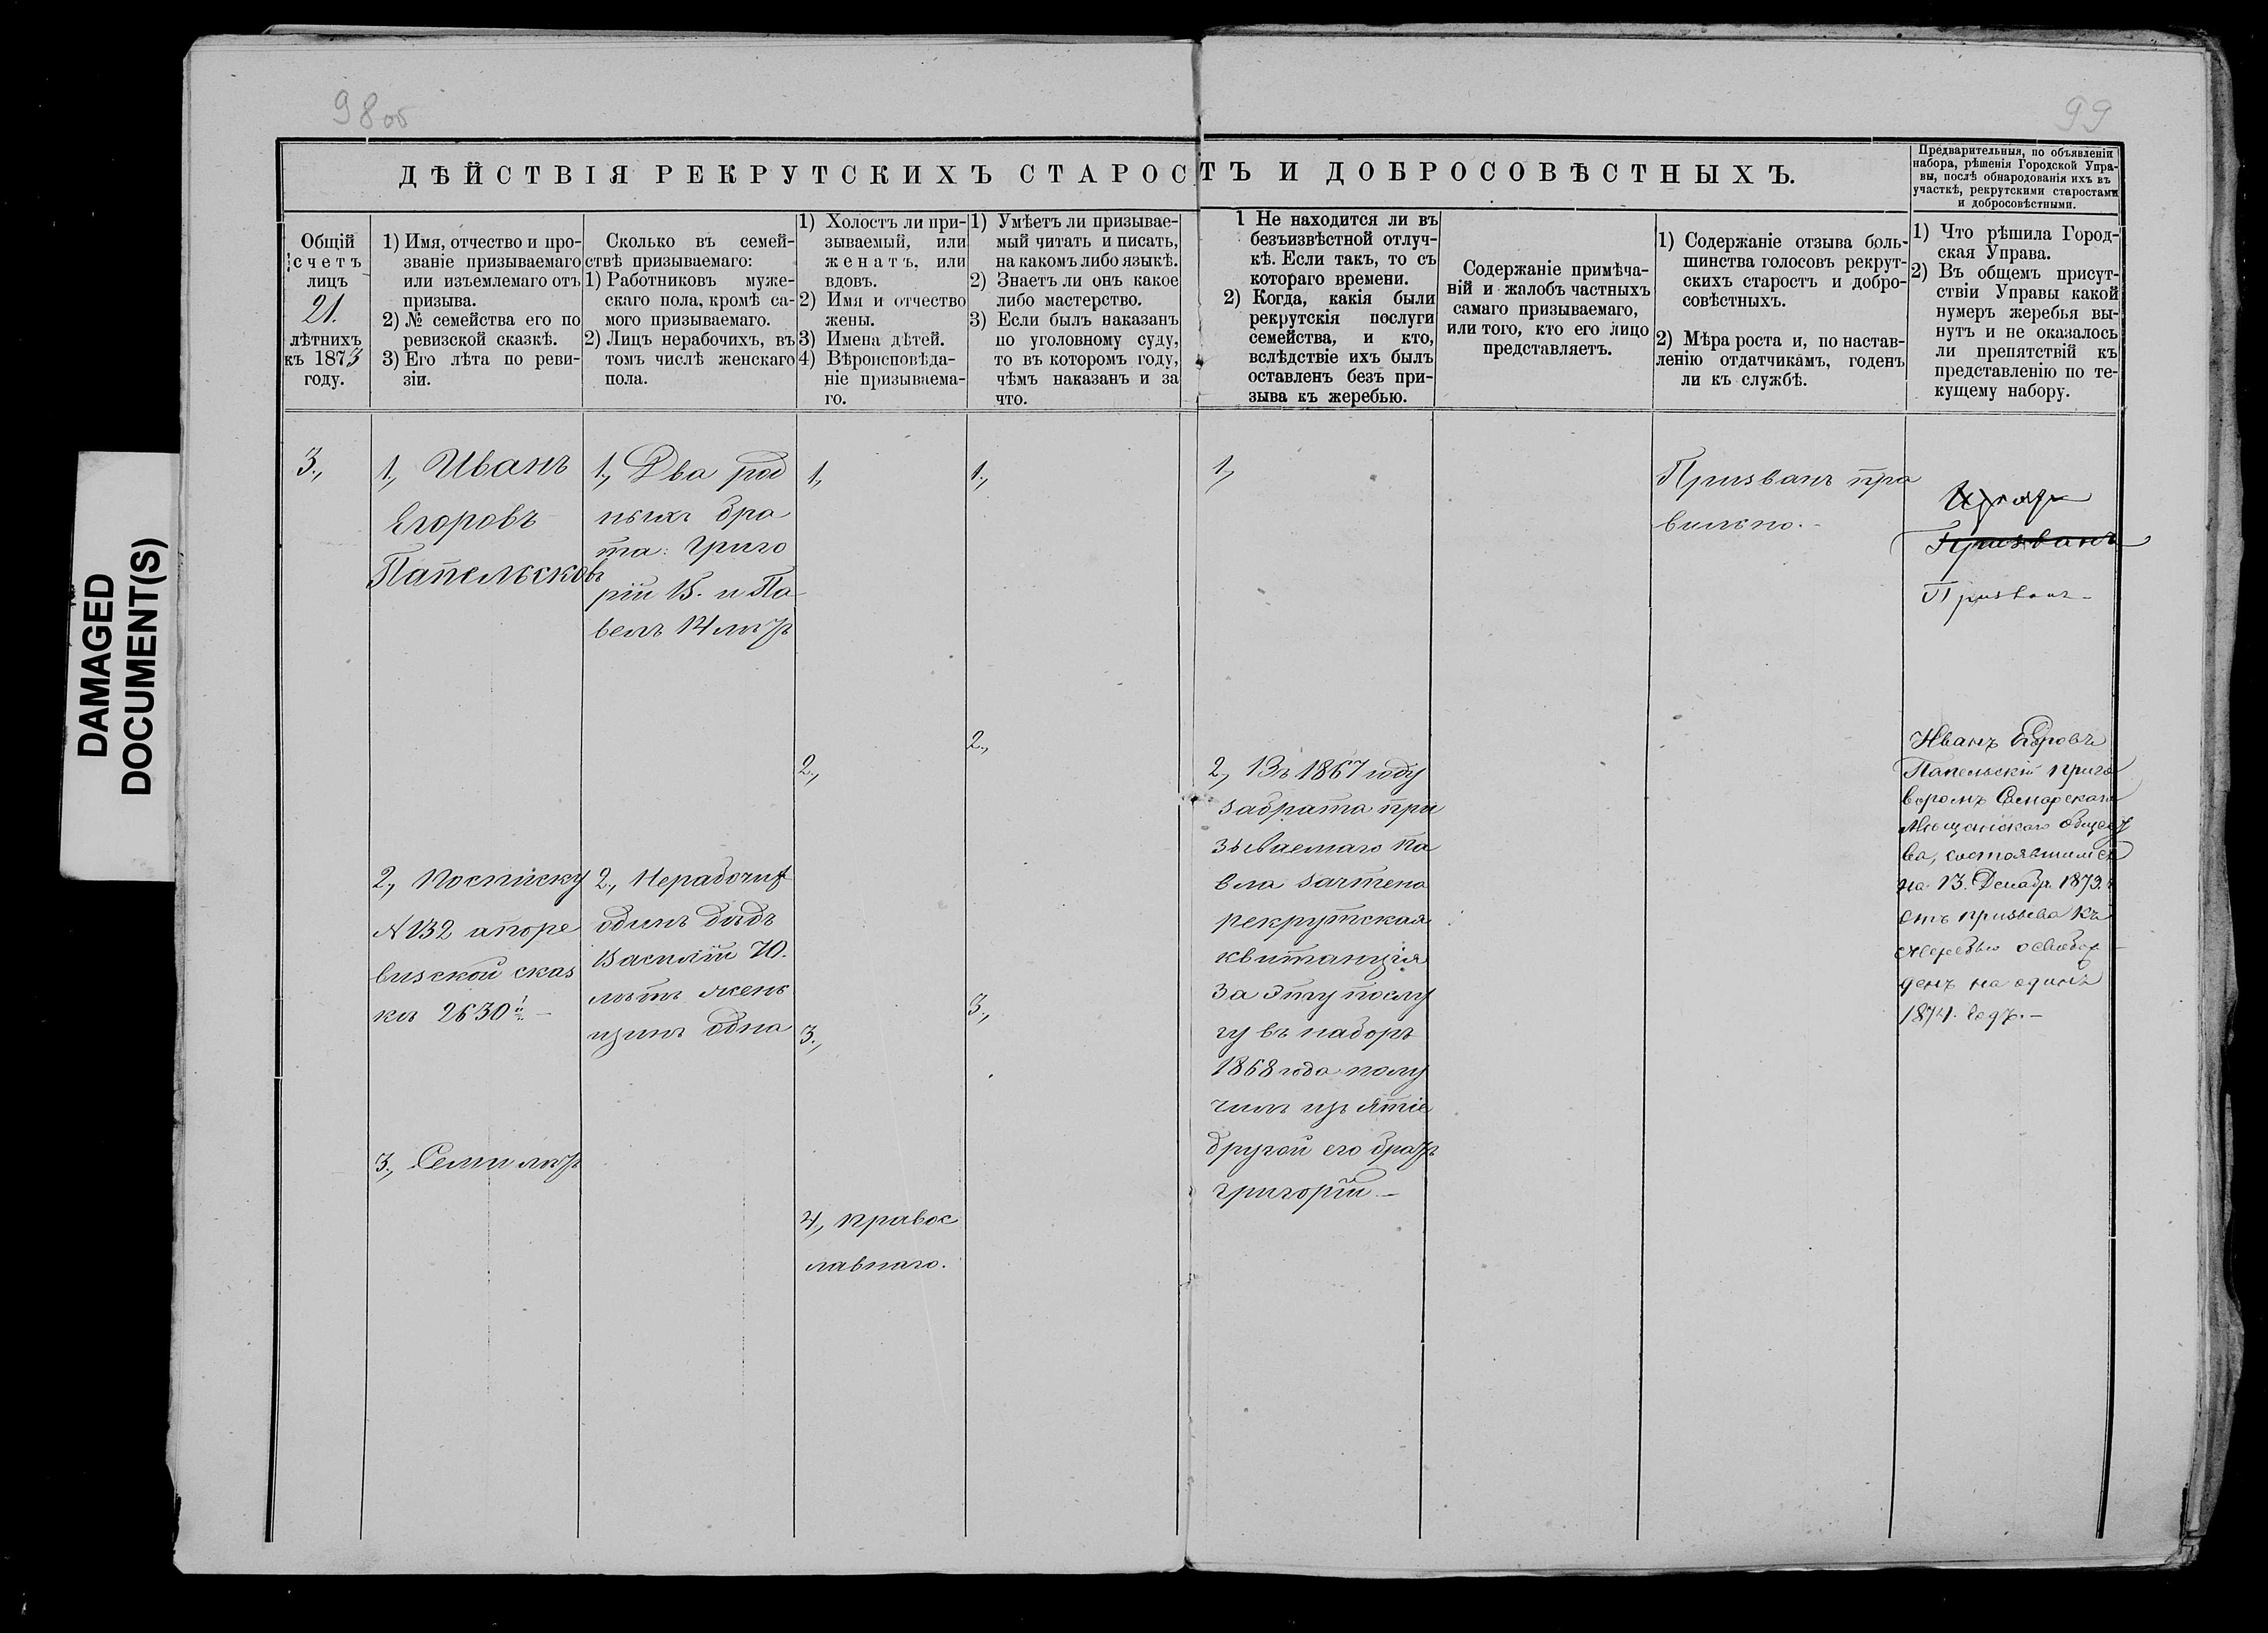 98 об
99
DAMAGED
DOCUMENT(S)
ДѢЙСТВІЯ РЕКРУТСКИХЪ СТАРОСТЪ И ДОБРОСОВѢСТНЫХЪ.
Предварительныя, по объявленіи
набора, рѣшенія Городской Упра-
вы, послѣ обнародованія ихъ въ
участкѣ, рекрутскими старостами
и добросовѣстными.
Общій
счетъ
лицъ
21.
лѣтнихъ
къ 1873
году.
1) Имя, отчество и про-
званіе призываемаго
или изъемлемаго отъ
призыва.
2) № семейства его по
ревизской сказкѣ.
3) Его лѣта по реви-
зіи.
Сколько въ семей-
ствѣ призываемаго:
1) Работниковъ муже-
скаго пола, кромѣ са-
мого призываемаго.
2) Лицъ нерабочихъ, въ
томъ числѣ женскаго
пола.
1) Холостъ ли при-
зываемый, или
женатъ, или
вдовъ.
2) Имя и отчество
жены.
3) Имена дѣтей.
4) Вѣроисповѣда-
ніе призываема-
го.
1) Умѣетъ ли призывае-
мый читать и писать,
на какомъ либо языкѣ.
2) Знаетъ ли онъ какое
либо мастерство.
3) Если былъ наказанъ
по уголовному суду,
то въ которомъ году,
чѣмъ наказанъ и за
что.
1 Не находится ли въ
безъизвѣстной отлуч-
кѣ. Если такъ, то съ
котораго времени.
2) Когда, какія были
рекрутскія послуги
семейства, и кто,
вслѣдствіе ихъ былъ
оставленъ безъ при-
зыва къ жеребью.
Содержаніе примѣча-
ній и жалобъ частныхъ
самаго призываемаго,
или того, кто его лицо
представляетъ.
1) Содержаніе отзыва боль-
шинства голосовъ рекрут-
скихъ старостъ и добро-
совѣстныхъ.
2) Мѣра роста и, по настав-
ленію отдатчикамъ, годенъ
ли къ службѣ.
1) Что рѣшила Город-
ская Управа.
2) Въ общемъ присут-
ствіи Управы какой
нумеръ жеребья вы-
нутъ и не оказалось
ли препятствій къ
представленію по те-
кущему набору.
3.,
1., Иванъ
Егоровъ
Папельсковъ
2., Посписку
№ 132 апоре
визской сказ
кѣ 2630й –
3., Семи лѣтъ
1., Два род
ныхъ бра
та: Григо
рій 15. и Па-
велъ 14 лѣтъ
2., Нерабочихъ
одинъ дѣдъ
Василій 70.
лѣтъ жен
щинъ одна
1.,
2.,
3.,
4., Правос
лавнаго.
1.,
2.,
3.,
1.,
2., Въ 1867 году
забрата при
зываемаго Па
вла зачтена
рекрутская
квитанція
За Эту послу
гу въ наборъ
1868 года полу
чилъ изъятіе
другой его братъ
Григорій. –
Призванъ пра
вильно. –
Призванъ
Призванъ –
Иванъ Егоровъ
Папельскій приго
воромъ Самарскаго
Мѣщанскаго общест
ва, состоявшимся
на 13. Декабр. 1873. г
отъ призыва къ
жеребью освобож-
денъ на одинъ
1874. годъ. –